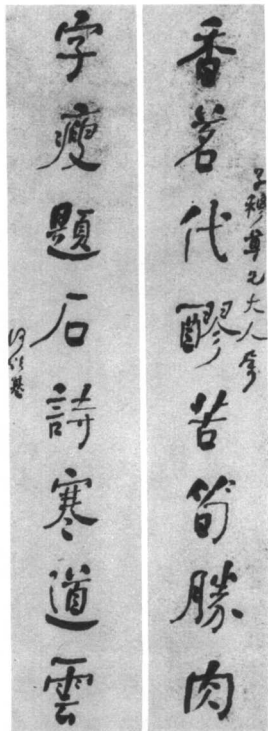 香茗代醪苦筍勝肉
子穆尊兄大人屬
字瘦題石詩寒道雲
何紹基